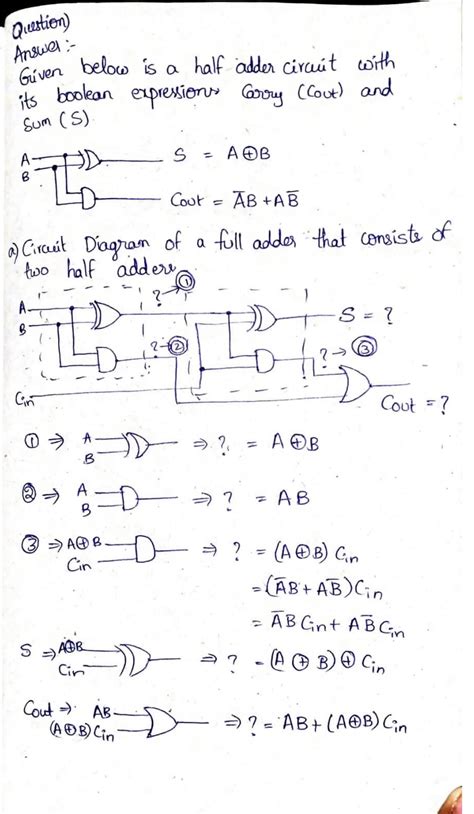 Question)
Answer :-
Given below is a half adder circuit with
its boolean expressions Carry (Cout) and
Sum (S)
A
B
S = A⊕B
Cout = A̅B + AB̅
a) Circuit Diagram of a full adder that consists of
two half adders
? → ①
A
B
S = ?
? → ②
? → ③
Cin
Cout = ?
① ⇒ A B ⇒ ? = A⊕B
② ⇒ A B ⇒ ? = AB
③ ⇒ A⊕B Cin ⇒ ? = (A⊕B) Cin
= (A̅B + AB̅) Cin
= A̅B Cin + AB̅ Cin
S ⇒ A⊕B Cin ⇒ ? = (A⊕B) ⊕ Cin
Cout ⇒ AB (A⊕B) Cin ⇒ ? = AB + (A⊕B) Cin